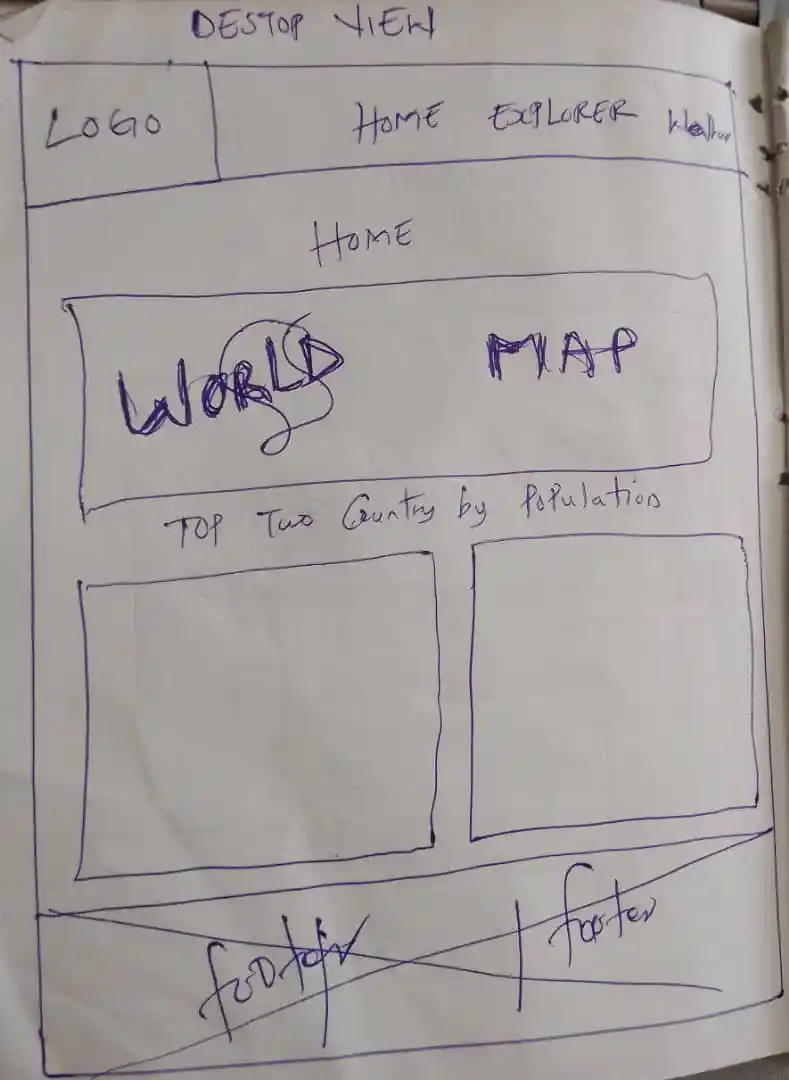 DESTOP VIEW
LOGO HOME EXPLORER
HOME
WORLD MAP
TOP Two Country by Population
footer footer